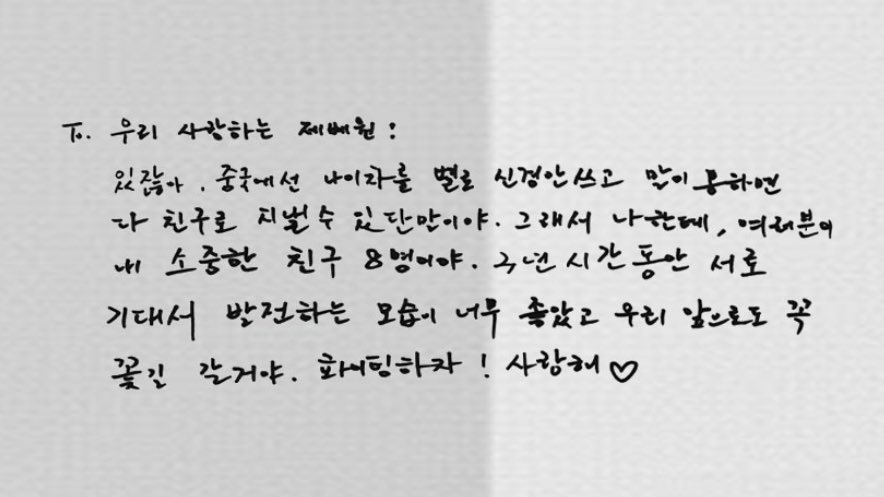 To. 우리 사랑하는 제베원 :
있잖아. 중국에선 나이차를 별로 신경안쓰고 말이 통하면
다 친구로 지낼 수 있단말이야. 그래서 나한테, 여러분이
내 소중한 친구 8명이야. 2년 시간동안 서로
기대서 발전하는 모습이 너무 좋았고 우리 앞으로도 꼭
꽃길 갈거야. 화이팅하자! 사랑해♡